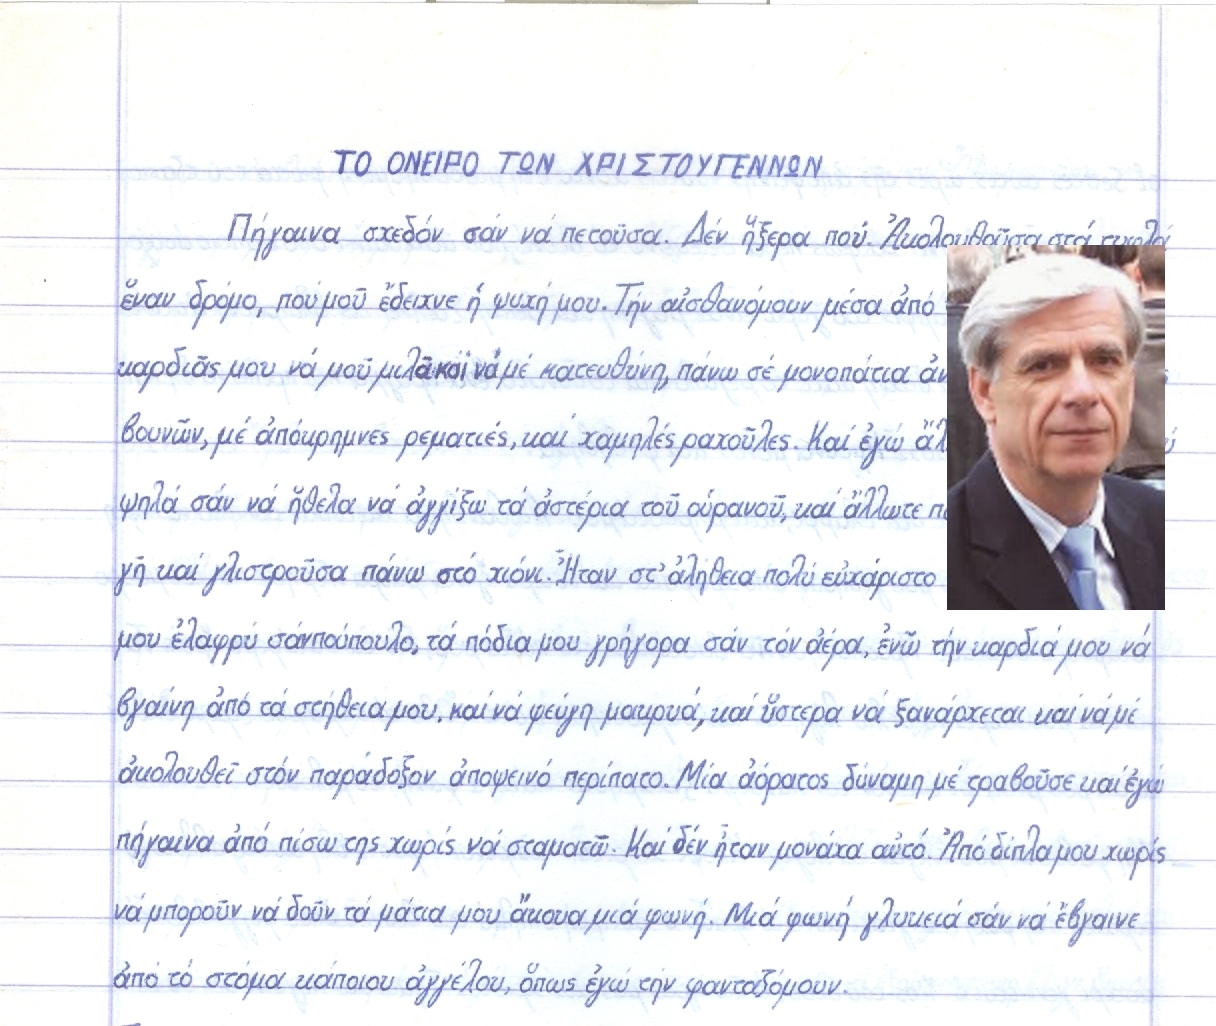 ΤΟ ΟΝΕΙΡΟ ΤΩΝ ΧΡΙΣΤΟΥΓΕΝΝΩΝ
Πήγαινα σχεδόν σάν νά πετοῦσα. Δέν ἤξερα πού. Ἀκολουθοῦσα στά τυφλά
ἕναν δρόμο, πού μοῦ ἔδειχνε ἡ ψυχή μου. Τήν αἰσθανόμουν μέσα ἀπό
καρδιᾶς μου νά μοῦ μιλᾶ καί νά μέ κατευθύνη, πάνω σέ μονοπάτια
βουνῶν, μέ ἀπόκρημνες ρεματιές, καί χαμηλές ραχοῦλες. Καί ἐγώ
ψηλά σάν νά ἤθελα νά ἀγγίξω τά ἀστέρια τοῦ οὐρανοῦ, καί ἄλλωτε
γῆ καί γλιστροῦσα πάνω στό χιόνι. Ἦταν στ' ἀλήθεια πολύ εὐχάριστο
μου ἐλαφρύ σάν πούπουλο, τά πόδια μου γρήγορα σάν τόν ἀέρα, ἐνῶ τήν καρδιά μου νά
βγαίνη ἀπό τά στήθεια μου, καί νά φεύγη μακρυά, καί ὕστερα νά ξανάρχεται καί νά μέ
ἀκολουθεῖ στόν παράδοξον ἀποψεινό περίπατο. Μία ἀόρατος δύναμη μέ τραβοῦσε καί ἐγώ
πήγαινα ἀπό πίσω της χωρίς νά σταματῶ. Καί δέν ἦταν μονάχα αὐτό. Ἀπό δίπλα μου χωρίς
νά μποροῦν νά δοῦν τά μάτια μου ἄκουα μιά φωνή. Μιά φωνή γλυκειά σάν νά ἔβγαινε
ἀπό τό στόμα κάποιου ἀγγέλου, ὅπως ἐγώ τήν φανταζόμουν.